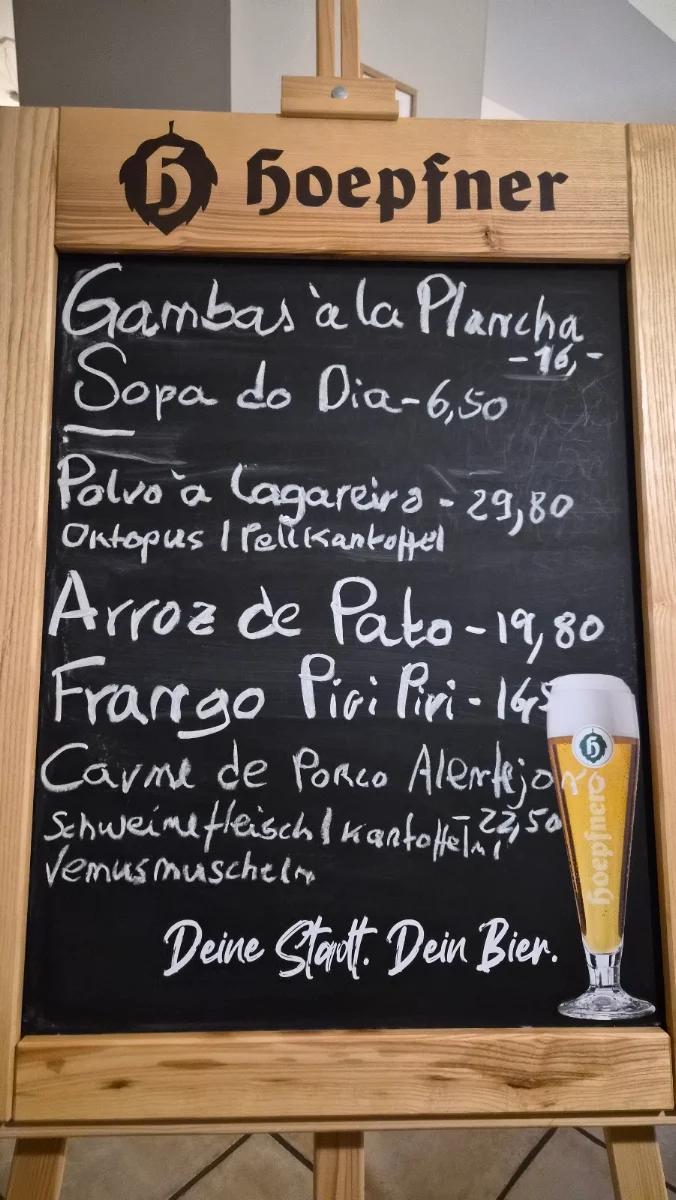 hoepfner
Gambas à la Plancha
-16,-
Sopa do Dia-6,50
Polvo à Lagareiro - 29,80
Oktopus | Pellkartoffel
Arroz de Pato-19,80
Frango Piri Piri - 16,5
Carne de Porco Alentejano
Schweinefleisch | Kartoffeln |
-22,50
Venusmuscheln
hoepfner
Deine Stadt. Dein Bier.